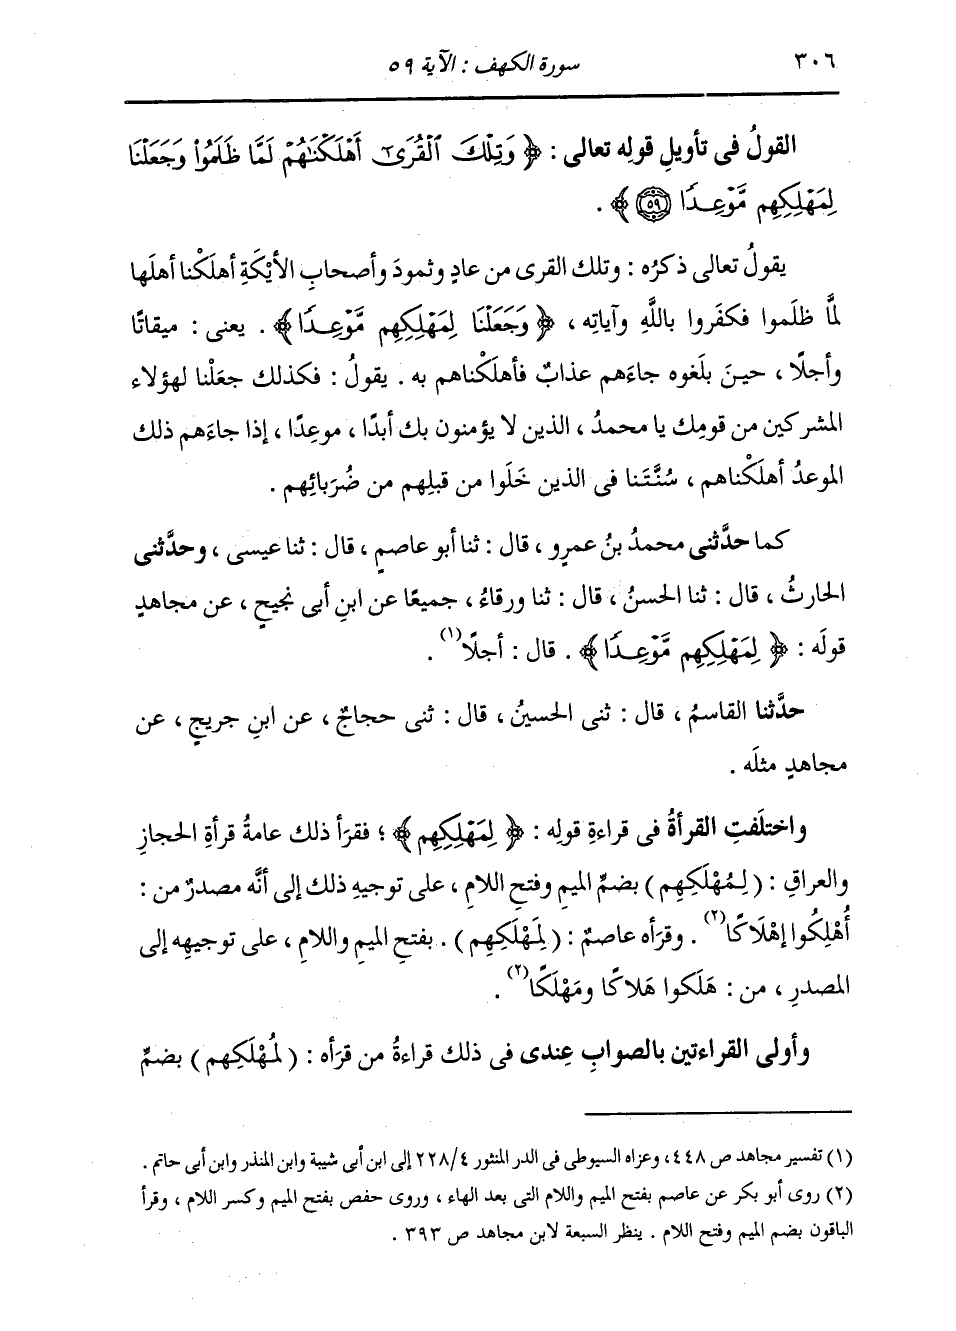 ٣٠٦ سورة الكهف : الآية ٥٩
القولُ فى تأويلِ قولِه تعالى : ﴿ وَتِلْكَ ٱلْقُرَىٰٓ أَهْلَكْنَٰهُمْ لَمَّا ظَلَمُوا۟ وَجَعَلْنَا
لِمَهْلِكِهِم مَّوْعِدًا ٥٩ ﴾ .
يقولُ تعالى ذكرُه : وتلك القرى من عادٍ وثمودَ وأصحابِ الأيْكَةِ أهلَكْنا أهلَها
لمَّا ظلَموا فكفَروا باللَّهِ وآياتِه ، ﴿ وَجَعَلْنَا لِمَهْلِكِهِم مَّوْعِدًا ﴾ . يعنى : ميقاتًا
وأجلًا ، حينَ بلَغوه جاءَهم عذابٌ فأهلَكْناهم به . يقولُ : فكذلك جعَلْنا لهؤلاء
المشركين من قومِك يا محمدُ ، الذين لا يؤمنون بك أبدًا ، موعِدًا ، إذا جاءَهم ذلك
الموعدُ أهلَكْناهم ، سُنَّتَنا فى الذين خَلَوا من قبلِهم من ضُرَبائِهم .
كما حدَّثنى محمدُ بنُ عمرٍو ، قال : ثنا أبو عاصمٍ ، قال : ثنا عيسى ، وحدَّثنى
الحارثُ ، قال : ثنا الحسنُ ، قال : ثنا ورقاءُ ، جميعًا عن ابنِ أبى نجيحٍ ، عن مجاهدٍ
قولَه : ﴿ لِمَهْلِكِهِم مَّوْعِدًا ﴾ . قال : أجلًا(١) .
حدَّثنا القاسمُ ، قال : ثنى الحسينُ ، قال : ثنى حجاجٌ ، عن ابنِ جريجٍ ، عن
مجاهدٍ مثلَه .
واختلَفتِ القرأةُ فى قراءةِ قولِه : ﴿ لِمَهْلِكِهِم ﴾ ؛ فقرَأ ذلك عامةُ قرأةِ الحجازِ
والعراقِ : ( لِمُهْلَكِهِم ) بضمِّ الميمِ وفتحِ اللامِ ، على توجيهِ ذلك إلى أنَّه مصدرٌ من :
أُهْلِكُوا إهْلَاكًا(٢) . وقرَأه عاصمٌ : ( لِمَهْلَكِهِم ) . بفتحِ الميمِ واللامِ ، على توجيهِه إلى
المصدرِ ، من : هَلَكوا هَلاكًا ومَهْلَكًا(٢) .
وأولى القراءتين بالصوابِ عِندى فى ذلك قراءةُ من قرَأه : ( لمُهْلَكِهم ) بضمِّ
(١) تفسير مجاهد ص ٤٤٨، وعزاه السيوطى فى الدر المنثور ٢٢٨/٤ إلى ابن أبى شيبة وابن المنذر وابن أبى حاتم .
(٢) روى أبو بكر عن عاصم بفتح الميم واللام التى بعد الهاء ، وروى حفص بفتح الميم وكسر اللام ، وقرأ
الباقون بضم الميم وفتح اللام . ينظر السبعة لابن مجاهد ص ٣٩٣ .